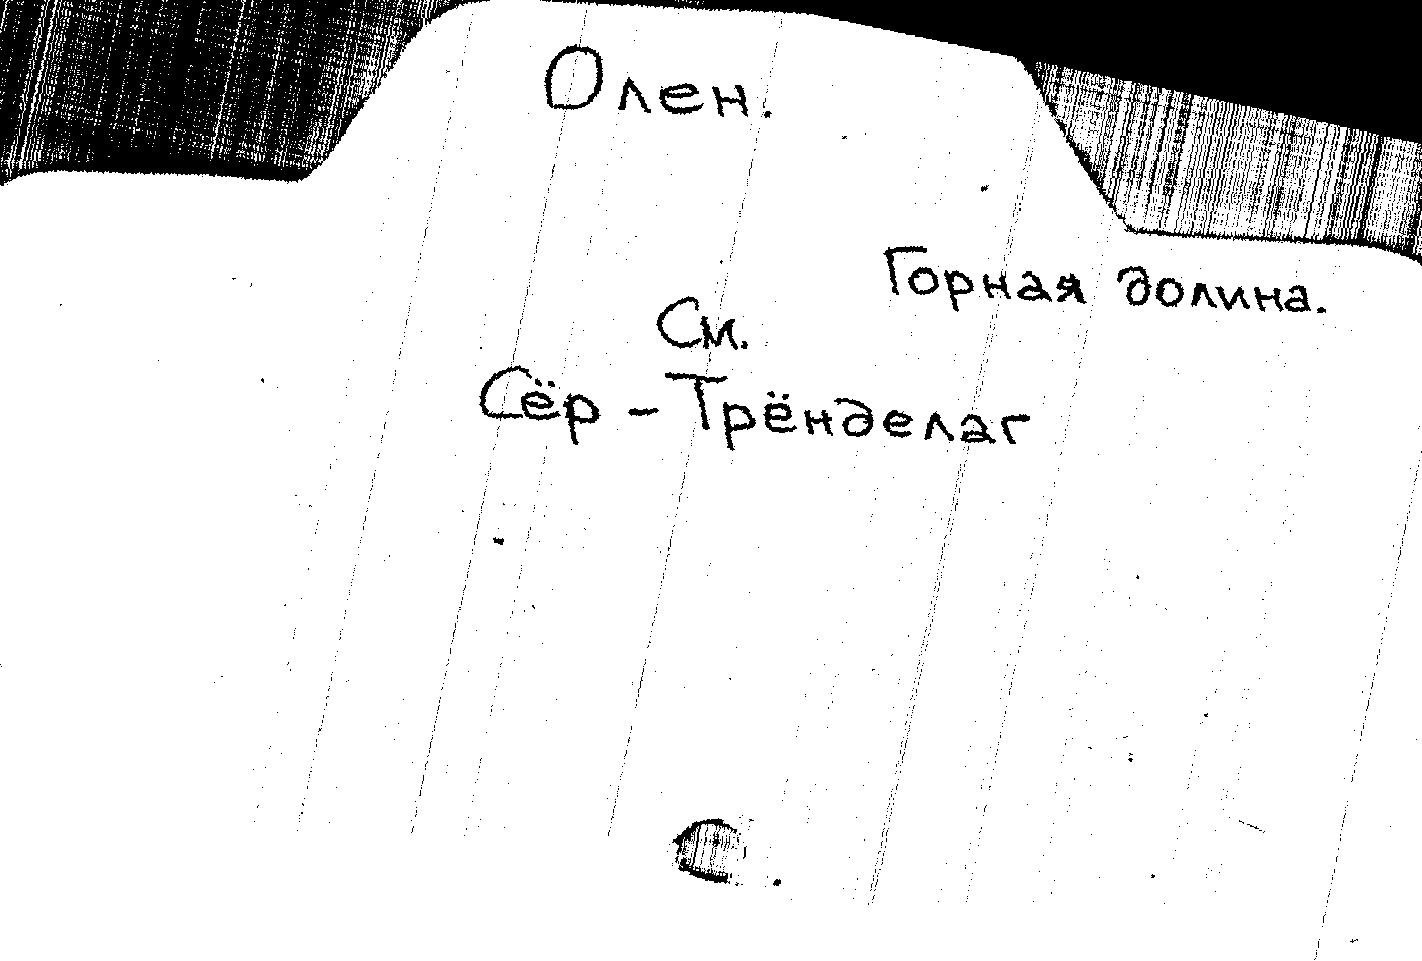 Олен.
Горная долина.
См.
Сёр - Трёнделаг